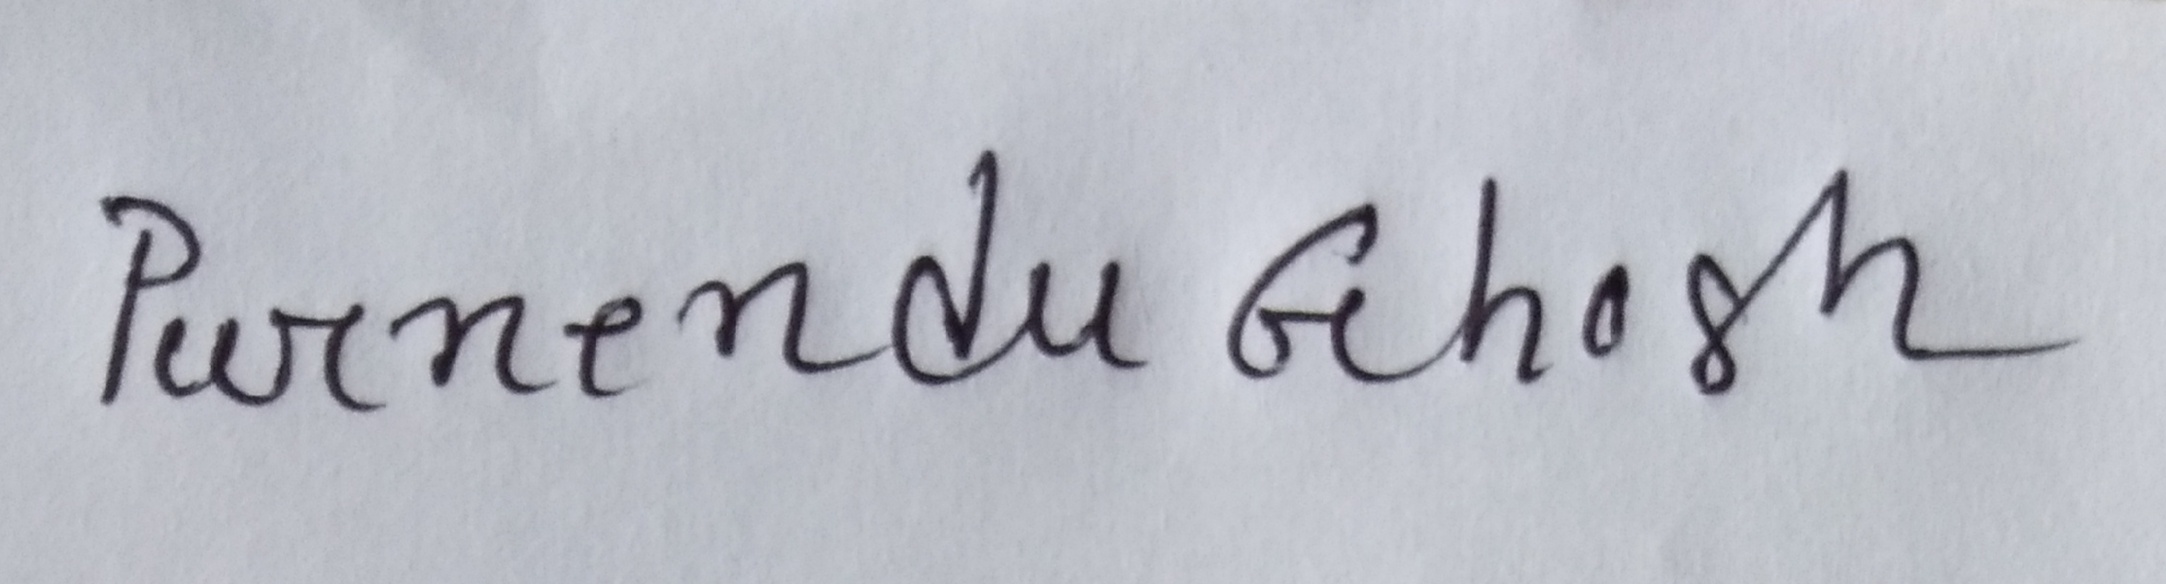 Purnendu Ghosh